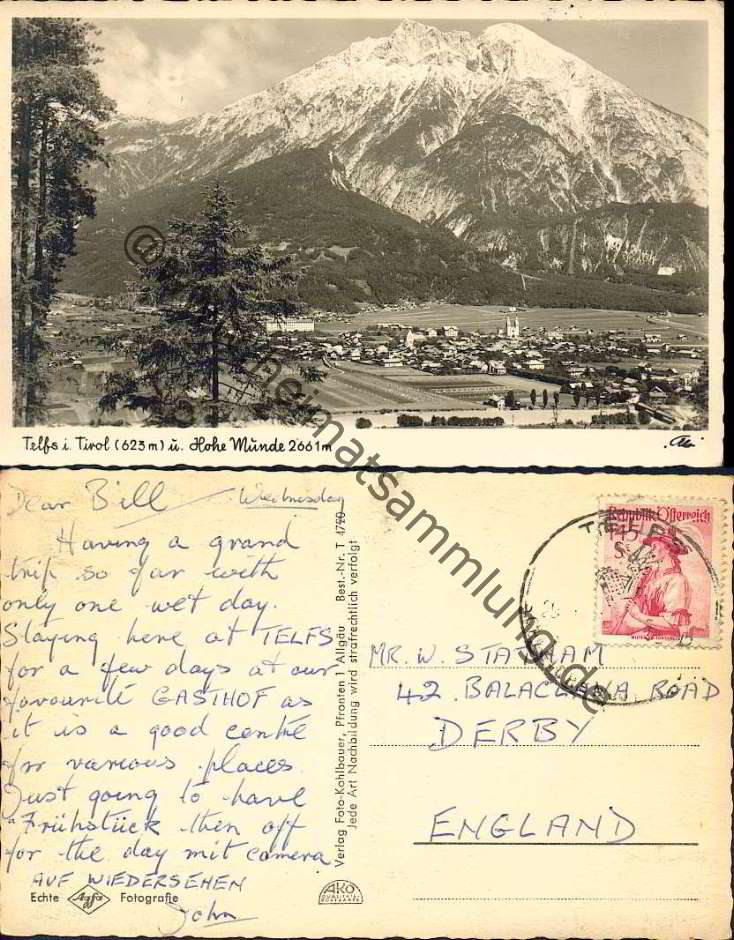 Telfs i. Tirol (623 m) ü. Hohe Munde 2661 m
heimatsammlung.de
Dear Bill Wednesday
Having a grand
trip so far with
only one wet day.
Staying here at TELFS
for a few days at our
favourite GASTHOF as
it is a good centre
for various places
Just going to have
Frühstück then off
for the day mit camera
AUF WIEDERSEHEN
John
Echte Agfa Fotografie
Verlag Foto-Kohlbauer, Pfronten 1 Allgäu Best.-Nr. T 4740
Jede Art Nachbildung wird strafrechtlich verfolgt
AKO
Republik Österreich
TELFS
MR. W. STATHAM
42 BALACLAVA ROAD
DERBY
ENGLAND